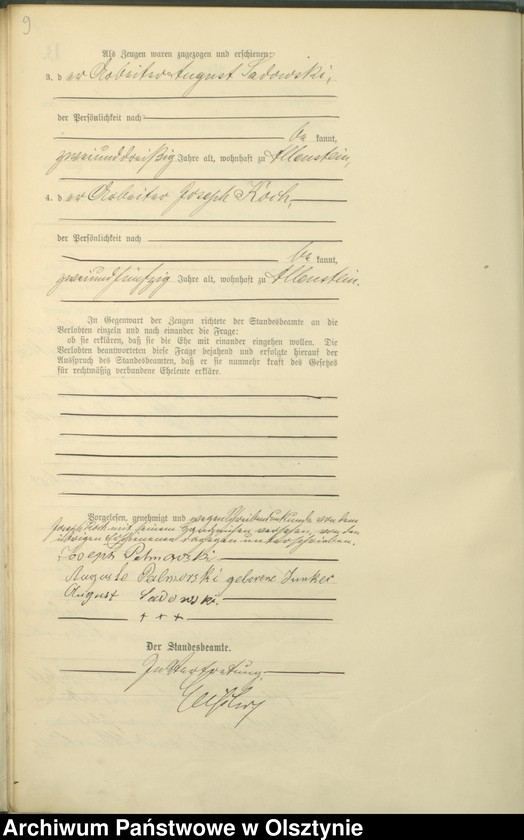 9
Als Zeugen waren zugezogen und erschienen:
3. der Arbeiter August Sadowski,
der Persönlichkeit nach
be kannt,
zweiunddreißig Jahre alt, wohnhaft zu Allenstein,
4. der Arbeiter Joseph Koch,
der Persönlichkeit nach
be kannt,
zweiundfünfzig Jahre alt, wohnhaft zu Allenstein.
In Gegenwart der Zeugen richtete der Standesbeamte an die
Verlobten einzeln und nach einander die Frage:
ob sie erklären, daß sie die Ehe mit einander eingehen wollen. Die
Verlobten beantworteten diese Frage bejahend und erfolgte hierauf der
Ausspruch des Standesbeamten, daß er sie nunmehr kraft des Gesetzes
für rechtmäßig verbundene Eheleute erkläre.
Vorgelesen, genehmigt und wegen Schreibensunkunde von dem
Joseph Koch mit seinem Handzeichen versehen, von den
übrigen Erschienenen dagegen unterschrieben.
Joseph Palmowski
Auguste Palmowski geborene Junker
August Sadowski.
+ + +
Der Standesbeamte.
In Vertretung
Archiwum Państwowe w Olsztynie